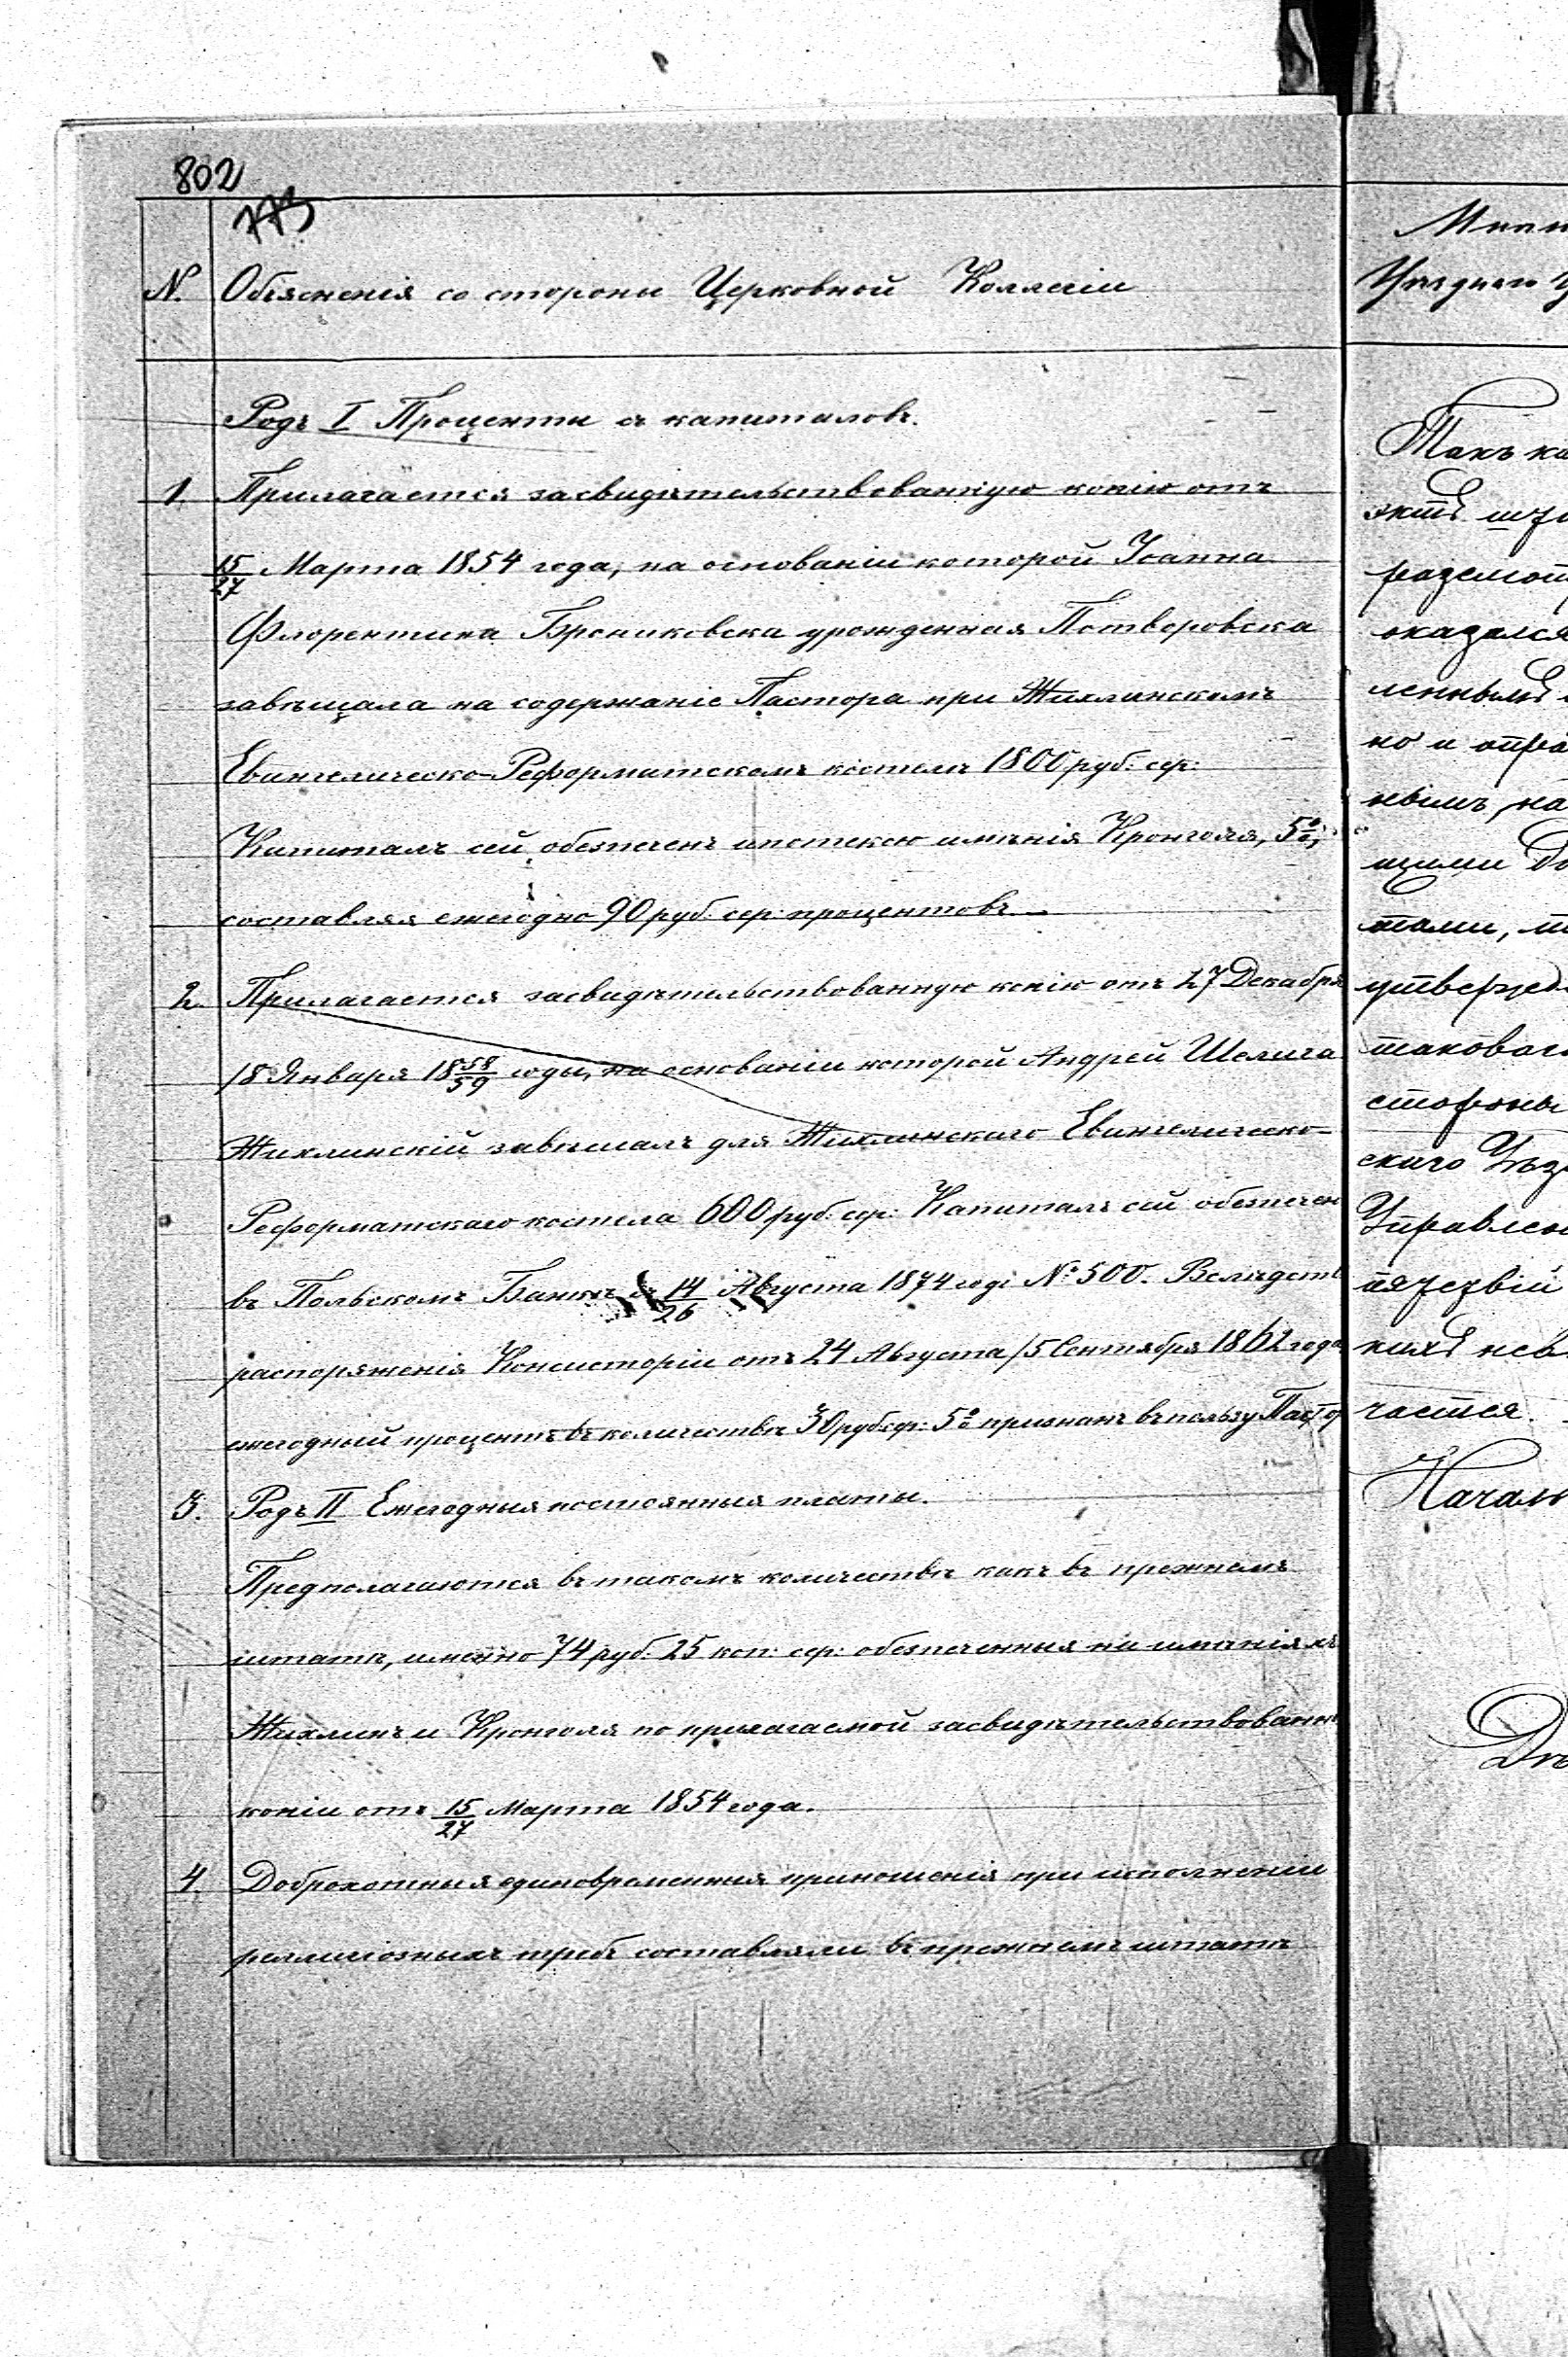 802
773
N. Объясненія со стороны Церковной Коллегіи
Родъ I Проценты съ капиталовъ.
1. Прилагается засвидѣтельствованную копію отъ
15/27 Марта 1854 года, на основаніи которой Іоанна
Флорентина Брониковска урожденная Потворовска
завѣщала на содержаніе Пастора при Жихлинскомъ
Евангелическо-Реформатскомъ костелѣ 1800 руб: сер:
Капиталъ сей обезпеченъ ипотекою имѣнія Кронголя, 5%,
составляя ежегодно 90 руб: сер: процентовъ.
2. Прилагается засвидѣтельствованную копію отъ 27 Декабря
/8 Января 1858/59 годы, на основаніи которой Андрей Шелига
Жихлинскій завѣщалъ для Жихлинскаго Евангелическо-
Реформатскаго костела 600 руб: сер: Капиталъ сей обезпечен
въ Польскомъ Банкѣ 14/26 Августа 1874 год: № 500. Вслѣдств
распоряженія Консисторіи отъ 24 Августа /5 Сентября 1862 года
ежегодный процентъ въ количествѣ 30 руб: сер: 5% признанъ въ пользу Пастор
3. Родъ II Ежегодныя постоянныя платы.
Предполагаются въ такомъ количествѣ какъ въ прежнемъ
штатѣ, именно 74 руб: 25 коп: сер: обезпеченныя на имѣніяхъ
Жихлинъ и Кронголя по прилагаемой засвидѣтельствованн
копіи отъ 15/27 Марта 1854 года.
4. Доброхотныя единовременныя приношенія при исполненіи
религіозныхъ требъ составляли въ прежнемъ штатѣ
Такъ ка
разсмот
оказался
но и
утвержд
таковаго
стороны
скаго Уѣз
Управлен
чается.
Началь